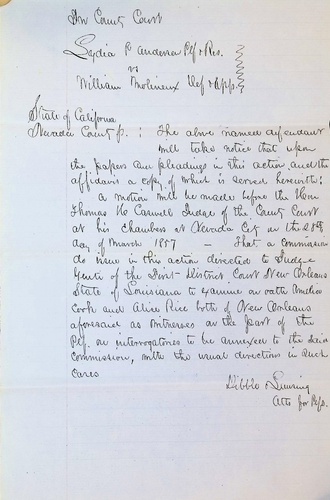 In County Court
Lydia P Anderson Plf & Res.
vs
William Molineux Def & App.
State of California
Nevada County ss. : The above named defendant
will take notice that upon
the papers and pleadings in this action and the
affidavit a copy of which is served herewith:
a motion will be made before the Hon
Thomas H Caswell Judge of the County Court
at his chambers at Nevada City on the 28th
day of March 1857 — That a commission
do issue in this action directed to Judge
of the First District Court New Orleans
State of Louisiana to examine on oath Amelia
Cook and Alice Rice both of New Orleans
aforesaid as witnesses on the part of the
Plf. on interrogatories to be annexed to the said
commission, with the usual directions in such
cases
Dibble &
Atts for Plf.